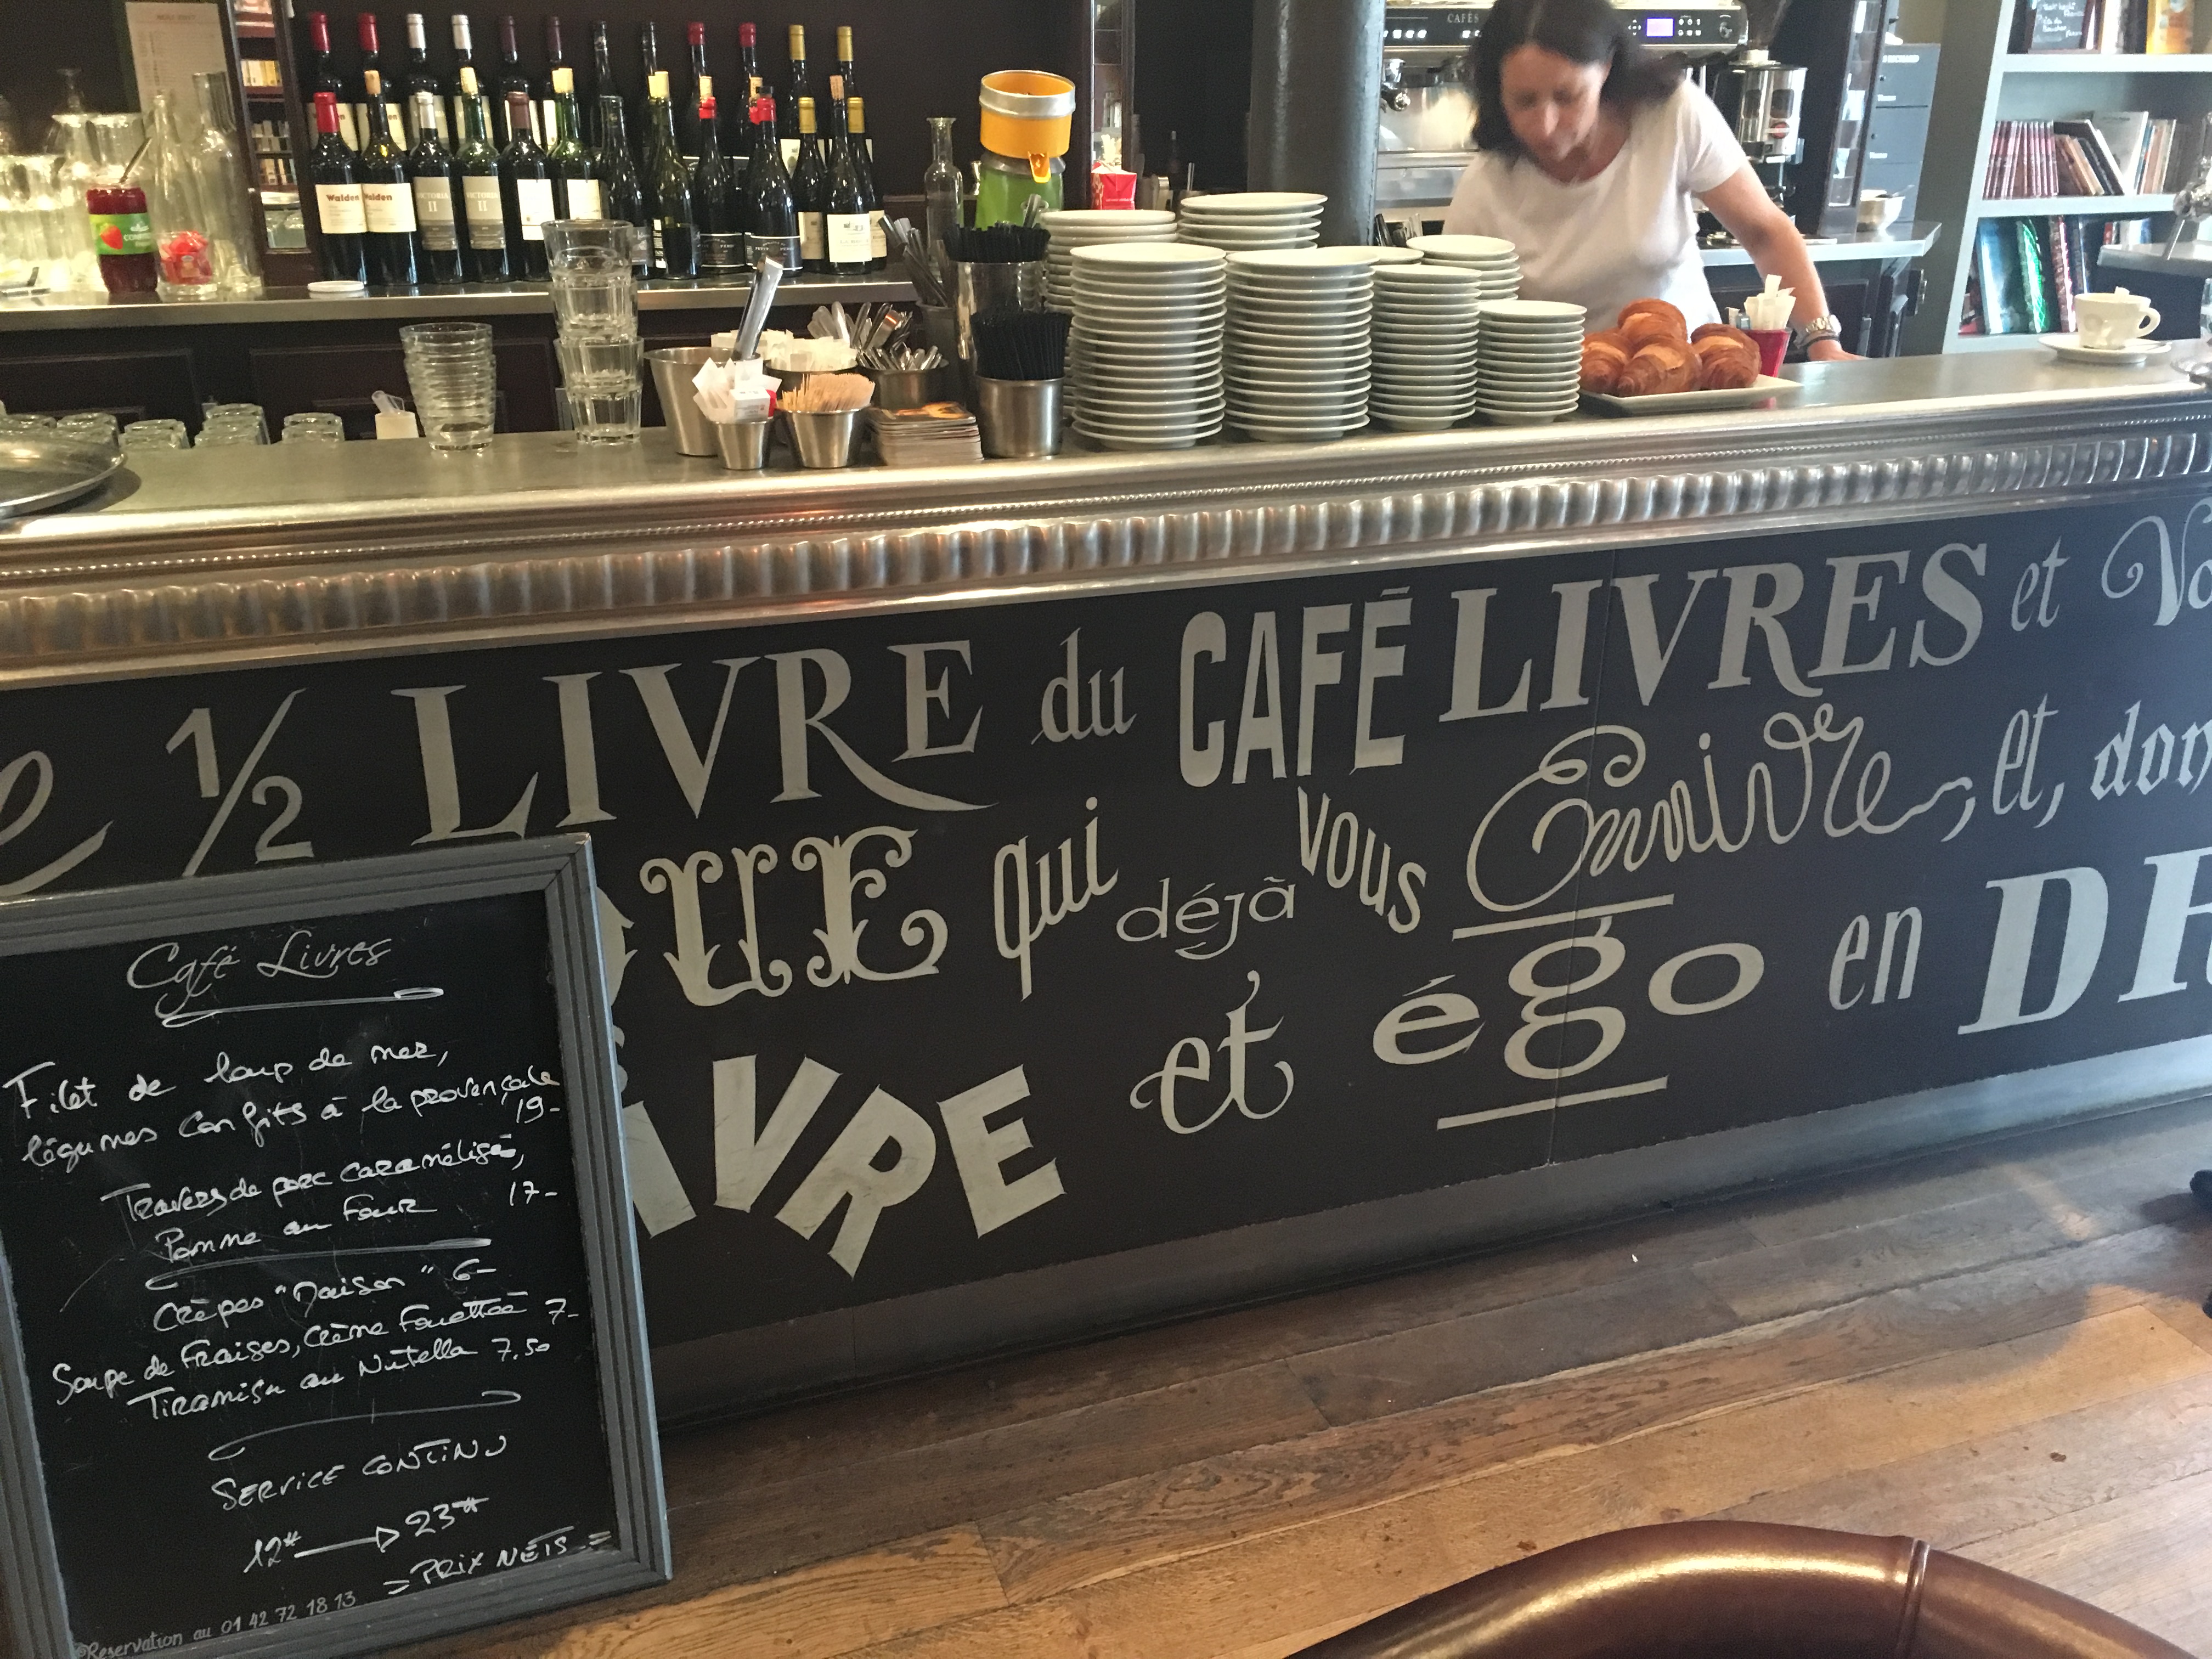 CAFÉS
Walden
Walden
VICTORIA
II
VICTORIA
II
1/2 LIVRE du CAFÉ LIVRES et
qui déjà vous Ennivre, et,
et égo en
Café Livres
Filet de loup de mer,
légumes confits à la provençale
19-
Travers de porc caramélisé,
Pomme au Four 17-
Crèpes "Maison" 6-
Soupe de Fraises, Crème Fouettée 7-
Tiramisu au Nutella 7.50
SERVICE CONTINU
12H → 23H
= PRIX NETS =
Reservation au 01 42 72 18 13